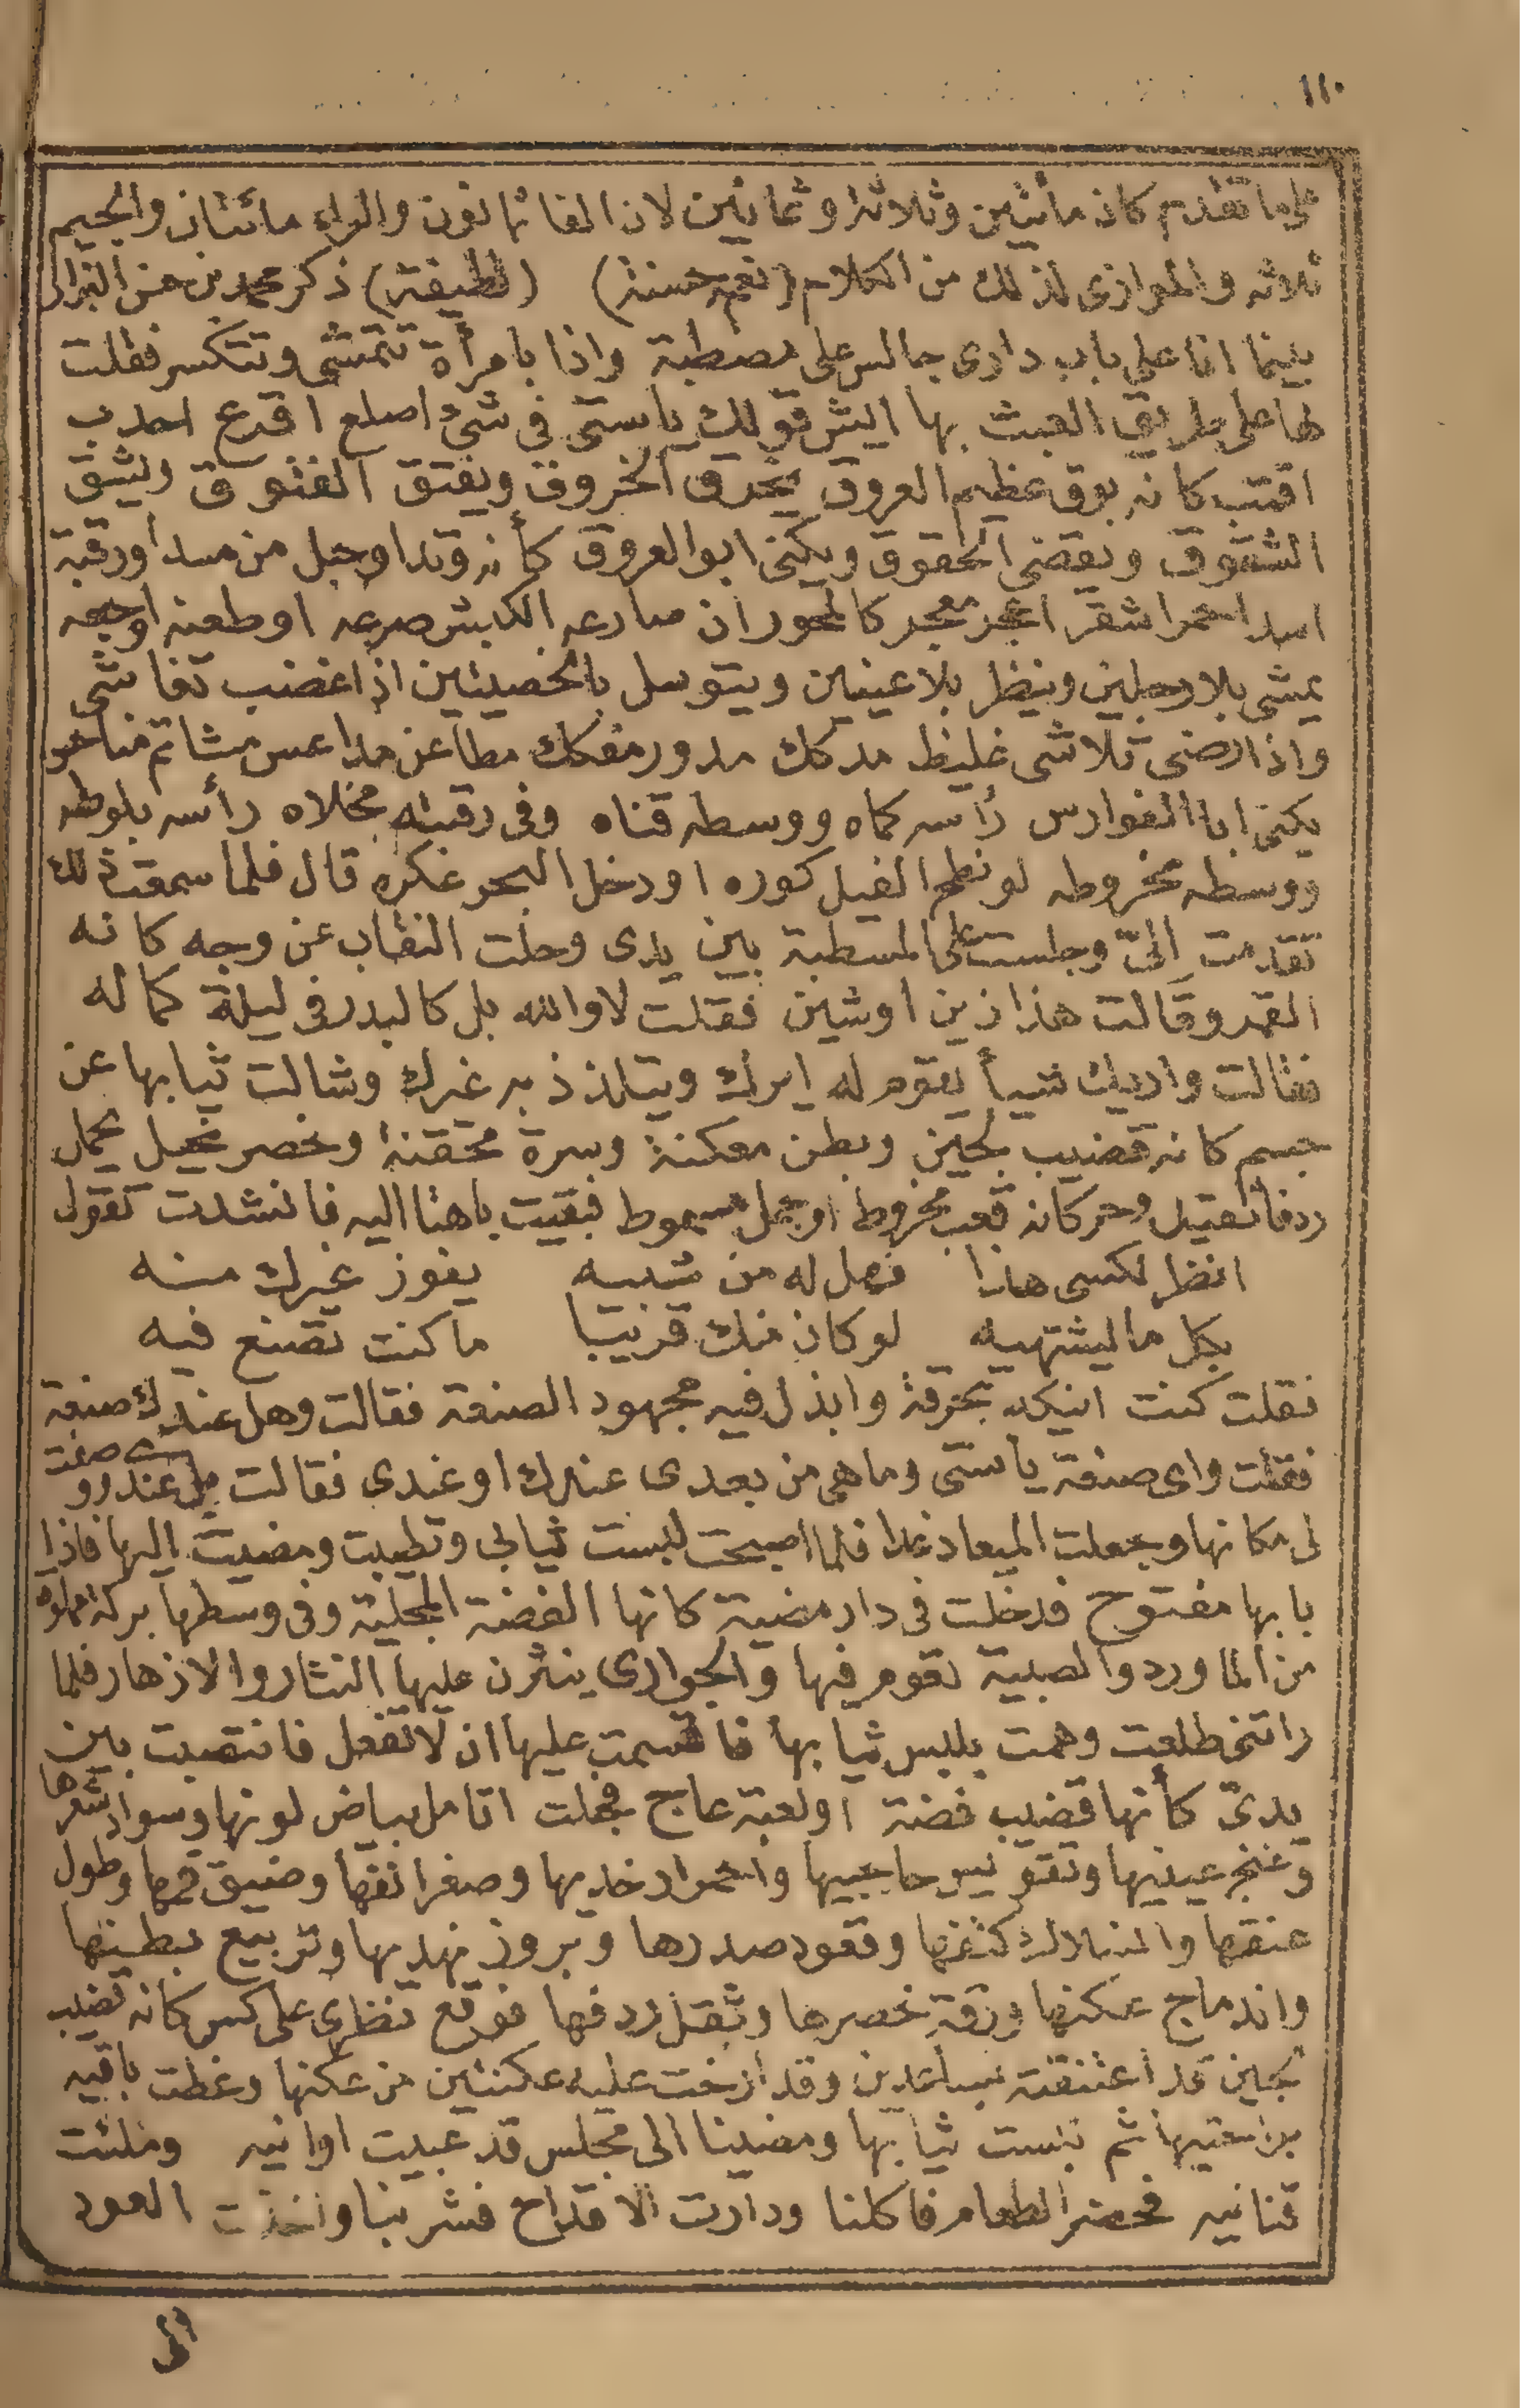 ١١٠
على ما تقدم كان مأتين وثلاثة وثمانين لان الفا ثمانون والراء مائتان والجيم
ثلاثه والموازى لذلك من الكلام (نعم حسنة) (لطيفة) ذكر محمد بن حسن النزالى
بينما انا على باب دارى جالس على مصطبة واذا بامرأة تتمشى وتتكسر فقلت
لها على طريق العبث بها ايش قولك ياستى فى شئ اصلع اقرع احدب
اقتب كانه بوق عظيم العروق يخرق الخروق ويفتق الفتوق ويشق
الشقوق ويقضى الحقوق ويكنى ابو العروق كأنه وتد او حبل من مسد او رقبة
اسد احمر اشقر اعجر معجر كالمحور ان صارعه الكبش صرعه او طعنه اوجعه
يمشى بلا رجلين وينظر بلا عينين ويتوسل بالخصيتين اذا غضب تفاشى
واذا رضى تلاشى غليظ مدكك مدور مفكك مطاعن مداعس مشاتم مناحر
يكنى ابا الفوارس رأسه كماه ووسطه قناه وفى رقبته مخلاه رأسه بلوطه
ووسطه مخروطه لو نطح الفيل كوره او دخل البحر عكره قال فلما سمعت ذلك
تقدمت الىّ وجلست على المسطبة بين يدى وحلت النقاب عن وجه كانه
القمر وقالت هذا زين او شين فقلت لا والله بل كالبدر فى ليلة كماله
فقالت واريك شيأ يقوم له ايرك ويتلذذ به غيرك وشالت ثيابها عن
جسم كانه قضيب لجين وبطن معكنة وسرة محققنة وخصر نحيل يحمل
ردفا ثقيل وحر كانه قعب مخروط او جمل مسموط فبقيت باهتا اليه فانشدت تقول
انظر لكسى هذا فهل له من شبيه يفوز غيرك منه
بكل ما ليشتهيه لو كان منك قريبا ما كنت تصنع فيه
فقلت كنت انيكه بحرقة وابذل فيه مجهود الصنعة فقالت وهل عندك صنعة
فقلت واى صنعة ياستى وما هى من بعدى عندك او عندى فقالت بل عندى وصفت
لى مكانها وجعلت الميعاد غدا فلما اصبحت لبست ثيابى وتطيبت ومضيت اليها فاذا
بابها مفتوح فدخلت فى دار مضية كانها الفضة المجلية وفى وسطها بركة مملوه
من الماورد والصبية تقوم فيها والجوارى ينثرن عليها النثار والازهار فلما
راتنى طلعت وهمت بلبس ثيابها فاقسمت عليها ان لا تفعل فانتصبت بين
يدىّ كأنها قضيب فضة اولعبة عاج فجعلت اتامل بياض لونها وسواد شعرها
وغنج عينيها وتقويس حاجبيها واحمرار خديها وصغر انفها وضيق فمها وطول
عنقها وانسلال كتفها وقعود صدرها وبروز نهديها وتربيع بطنها
واندماج عكنها ورقة خصرها وثقل ردفها فوقع نظرى على كس كانه قضيب
لجين قد اعتنقته بساعدين وقد ارخت عليه عكنتين من عكنها وغطت باقيه
براحتيها ثم لبست ثيابها ومضينا الى مجلس قد عبيت اوانيه وملئت
قنانيه فحضر الطعام فاكلنا ودارت الاقداح فشربنا واخذت العود